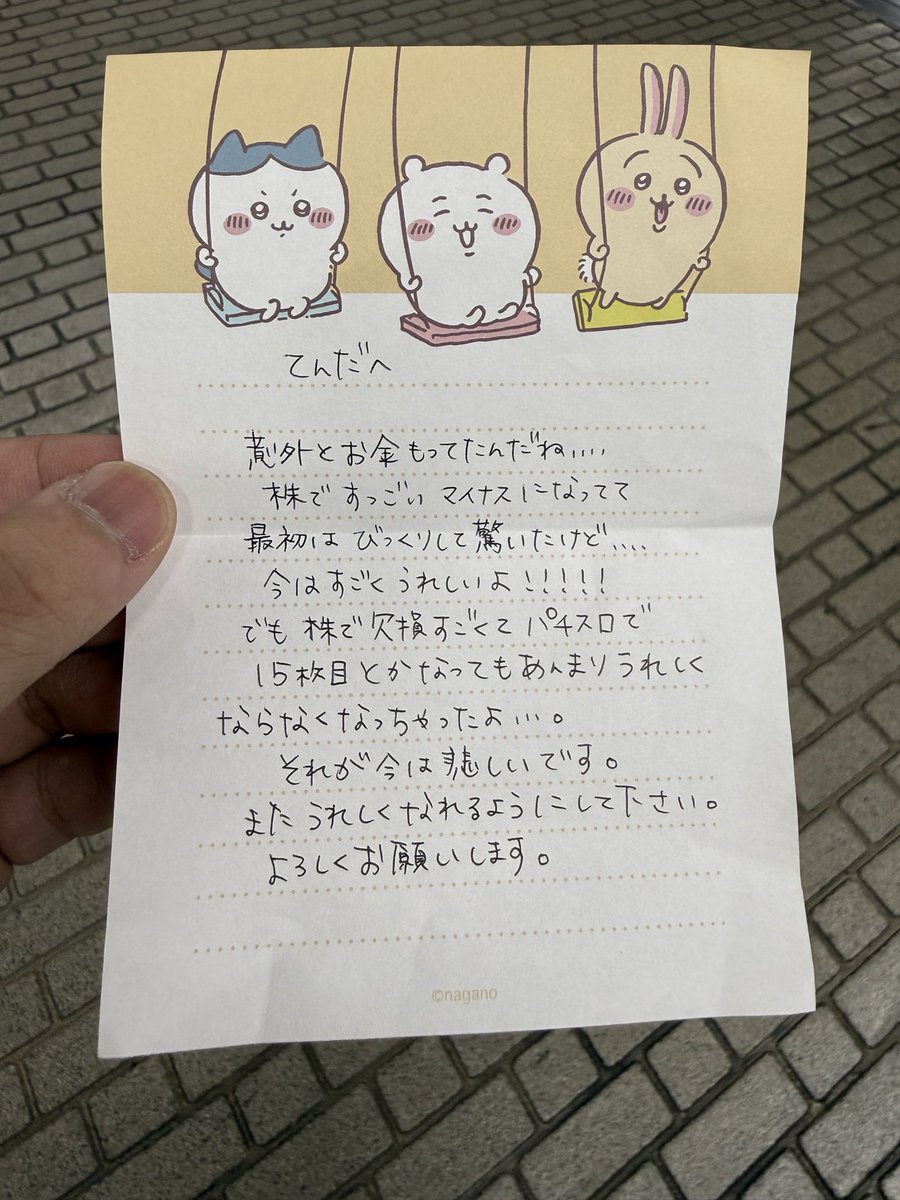 てんだへ
意外とお金もってたんだね....
株ですっごいマイナスになってて
最初はびっくりして驚いたけど....
今はすごくうれしいよ!!!!!
でも株で欠損すごくてパチスロで
15枚目とかなってもあんまりうれしく
ならなくなっちゃったよ...。
それが今は悲しいです。
またうれしくなれるようにして下さい。
よろしくお願いします。
©nagano